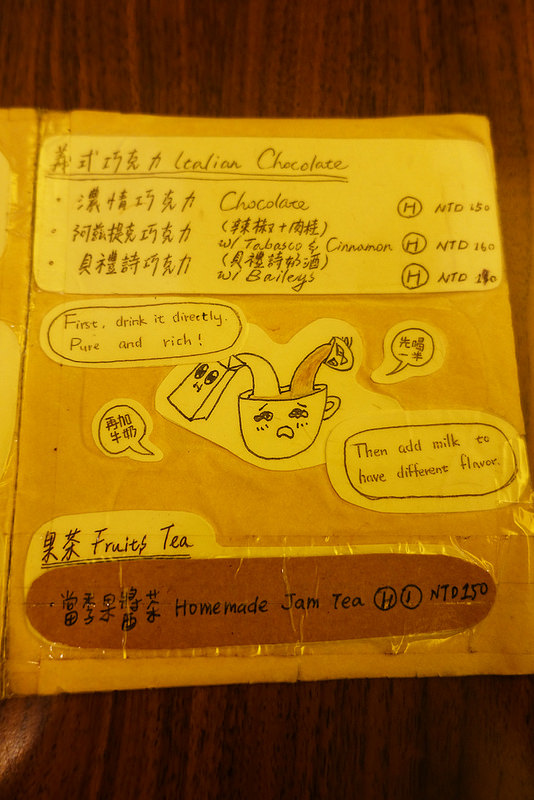 義式巧克力 Italian Chocolate
· 濃情巧克力 Chocolate Ⓗ NTD 150
· 阿茲提克巧克力 (辣椒+肉桂)
w/ Tabasco & Cinnamon Ⓗ NTD 160
· 貝禮詩巧克力 (貝禮詩奶酒)
w/ Baileys Ⓗ NTD
First, drink it directly.
Pure and rich!
先喝
一半
再加
牛奶
Then add milk to
have different flavor.
果茶 Fruits Tea
· 當季果醬茶 Homemade Jam Tea Ⓗ Ⓘ NTD 150